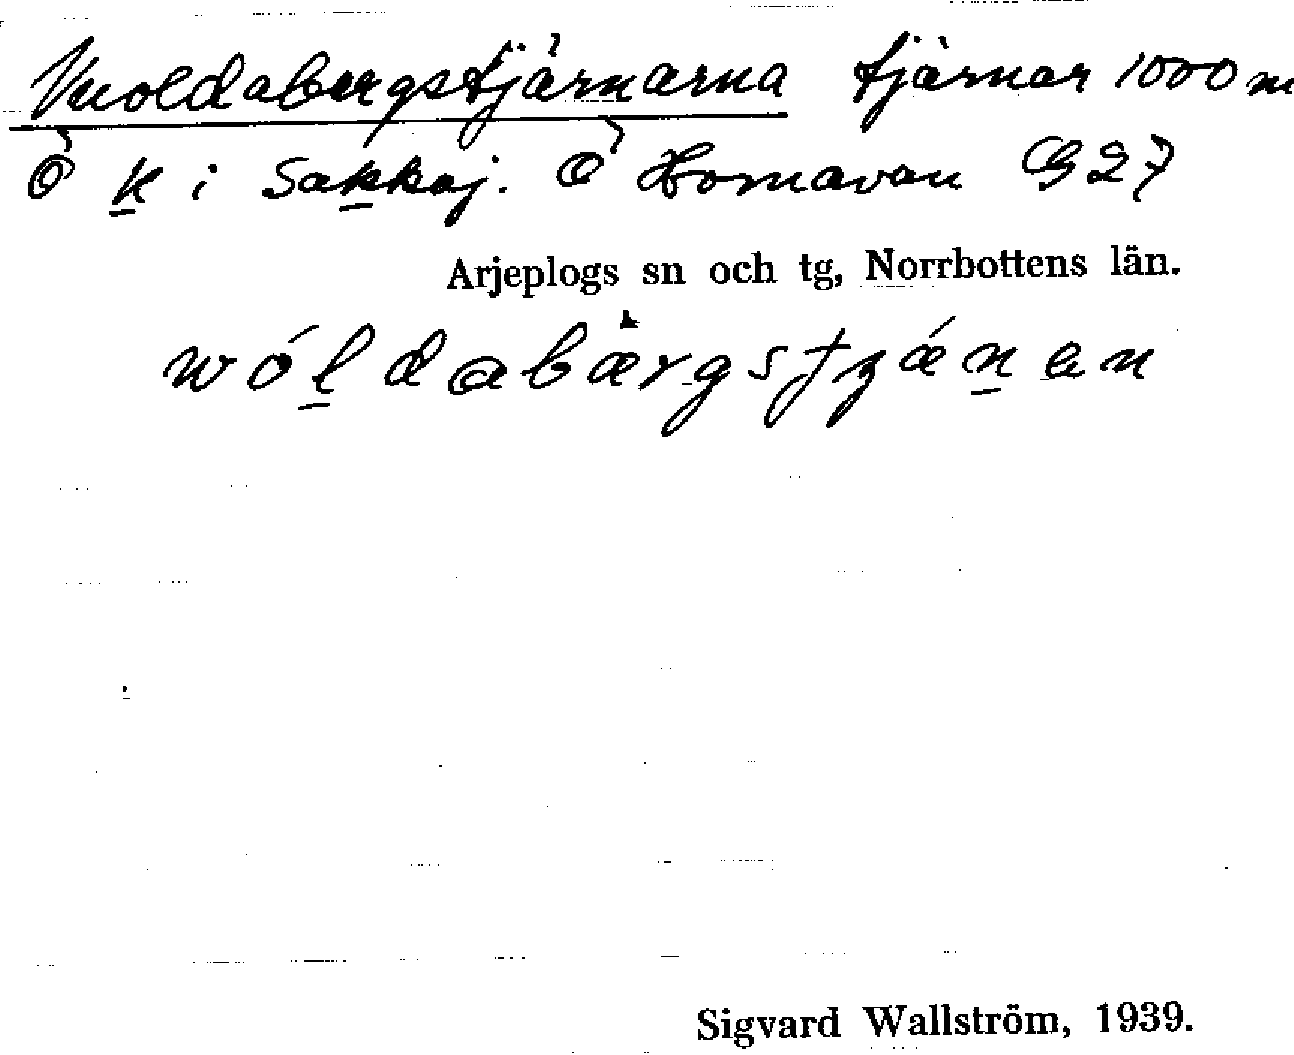 Vuoldabergstjärnarna tjärnar 1000 m
Ö k i Sakkaj. Ö Hornavan G27
Arjeplogs sn och tg, Norrbottens län.
wóldabærgstjǽnen
Sigvard Wallström, 1939.